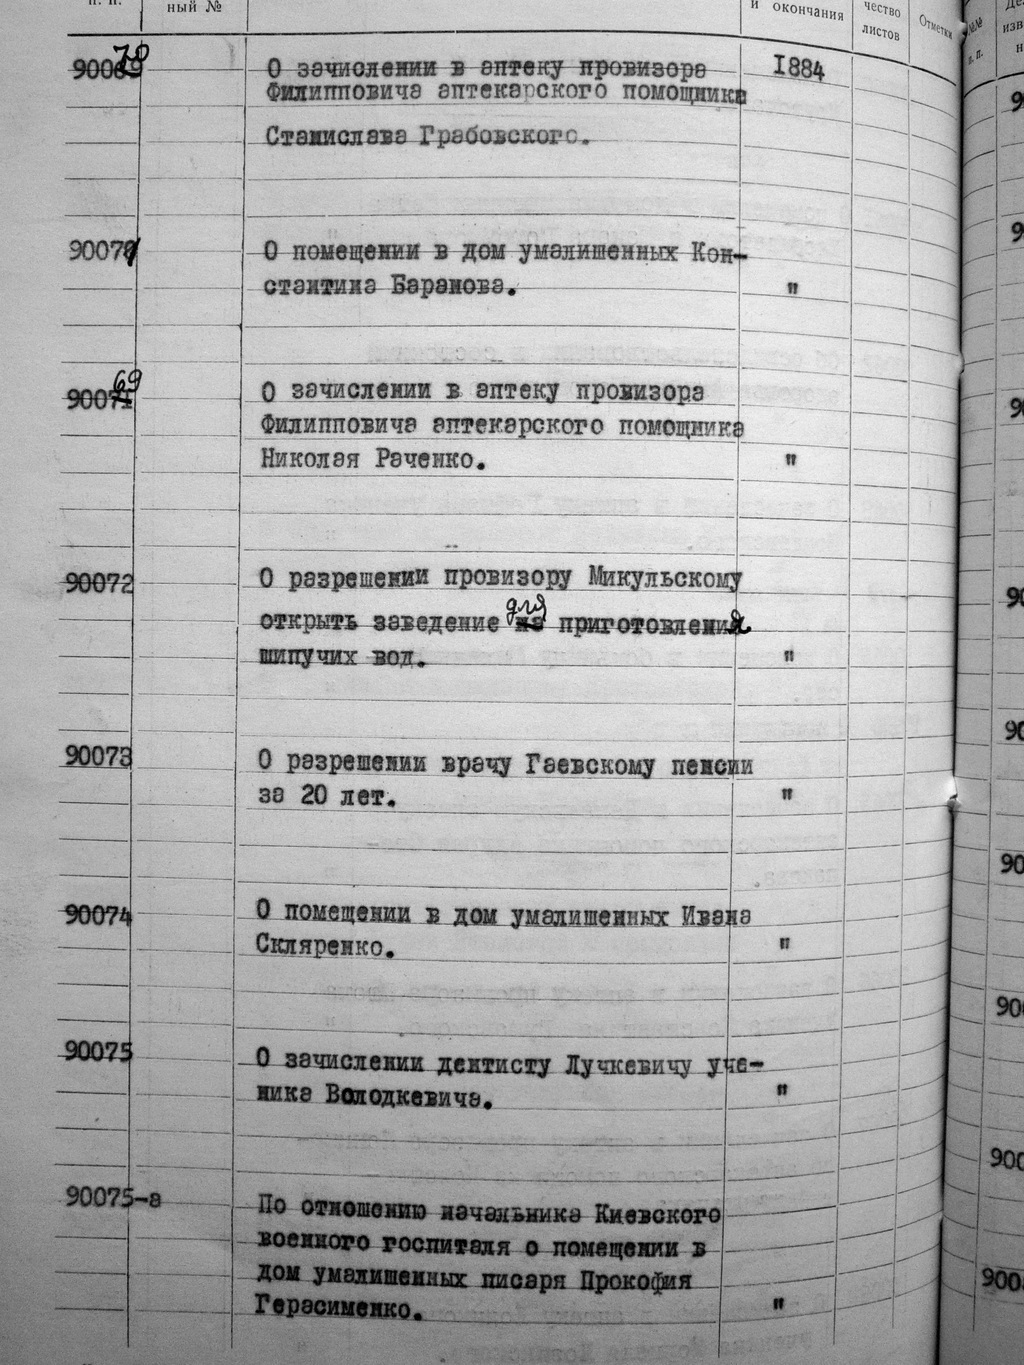 п. п.
ный №
и окончания
чество
листов
Отметки
№№
п. п.
90069 70 О зачислении в аптеку провизора 1884
Филипповича аптекарского помощника
Станислава Грабовского.
90071 О помещении в дом умалишенных Кон-
стантина Баранова. "
90071 69 О зачислении в аптеку провизора
Филипповича аптекарского помощника
Николая Раченко. "
90072 О разрешении провизору Микульскому
открыть заведение на для приготовления
шипучих вод. "
90073 О разрешении врачу Гаевскому пенсии
за 20 лет. "
90074 О помещении в дом умалишенных Ивана
Скляренко. "
90075 О зачислении дентисту Лучкевичу уче-
ника Володкевича. "
90075-а По отношению начальника Киевского
военного госпиталя о помещении в
дом умалишенных писаря Прокофия
Герасименко. "